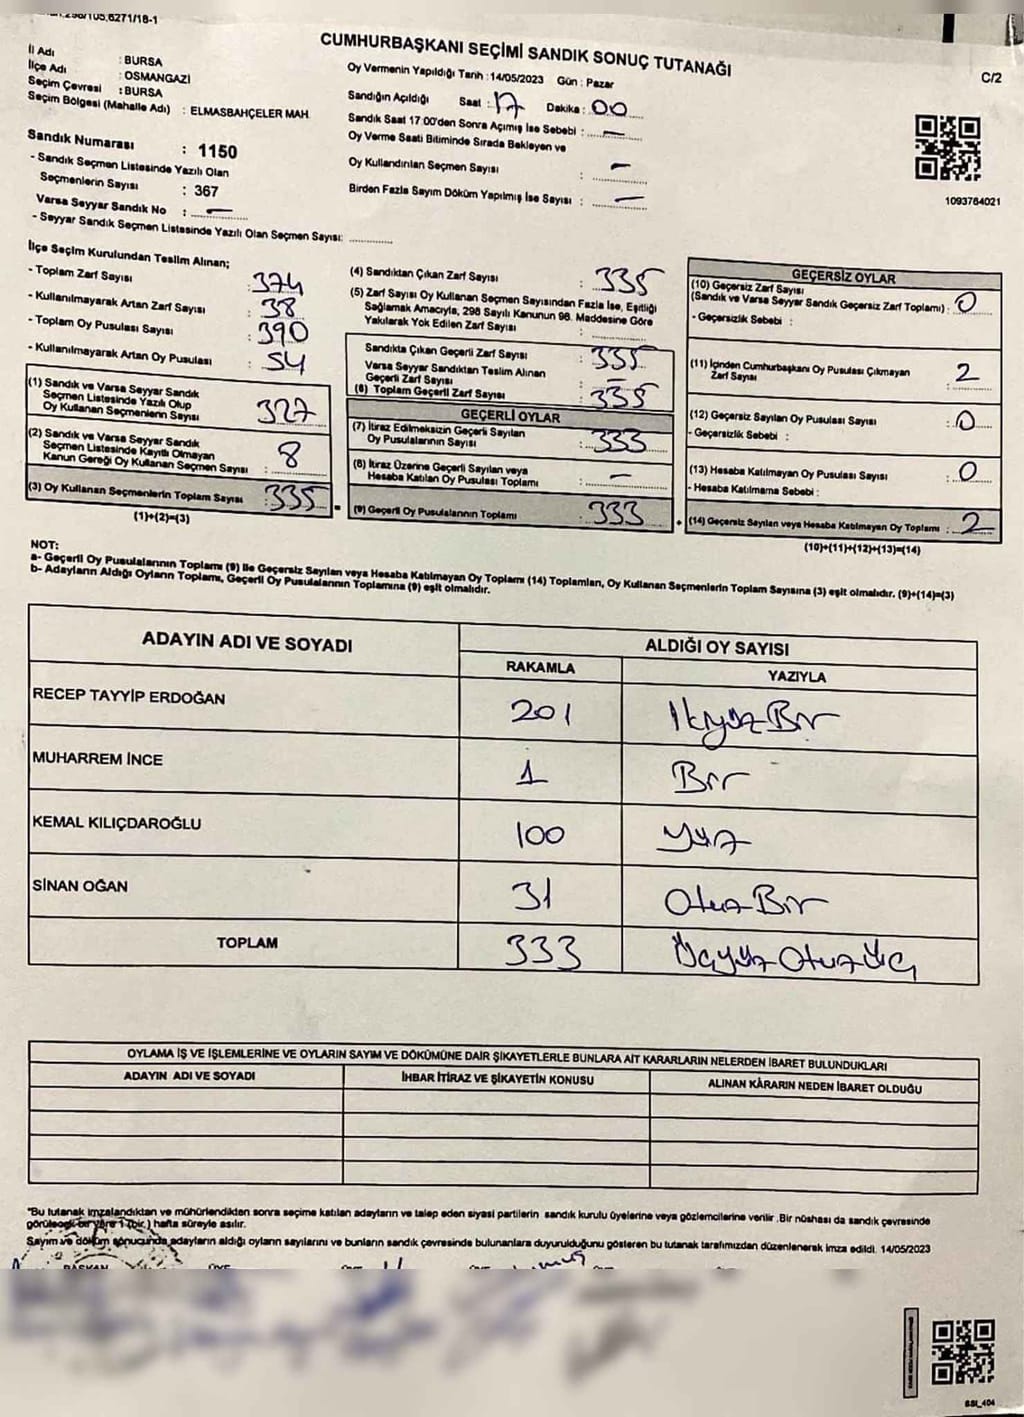 298/105,6271/18-1
CUMHURBAŞKANI SEÇİMİ SANDIK SONUÇ TUTANAĞI
C/2
İl Adı : BURSA
İlçe Adı : OSMANGAZİ
Seçim Çevresi : BURSA
Seçim Bölgesi (Mahalle Adı) : ELMASBAHÇELER MAH.
Oy Vermenin Yapıldığı Tarih : 14/05/2023 Gün : Pazar
Sandığın Açıldığı Saat : 17 Dakika : 00
Sandık Saat 17:00'den Sonra Açımış İse Sebebi : —
Oy Verme Saati Bitiminde Sırada Bekleyen ve
Oy Kullandırılan Seçmen Sayısı : —
Birden Fazla Sayım Döküm Yapılmış İse Sayısı : —
1093764021
Sandık Numarası : 1150
- Sandık Seçmen Listesinde Yazılı Olan
Seçmenlerin Sayısı : 367
Varsa Seyyar Sandık No : —
- Seyyar Sandık Seçmen Listesinde Yazılı Olan Seçmen Sayısı:
İlçe Seçim Kurulundan Teslim Alınan;
- Toplam Zarf Sayısı : 374
- Kullanılmayarak Artan Zarf Sayısı : 38
- Toplam Oy Pusulası Sayısı : 390
- Kullanılmayarak Artan Oy Pusulası : 54
(1) Sandık ve Varsa Seyyar Sandık
Seçmen Listesinde Yazılı Olup
Oy Kullanan Seçmenlerin Sayısı : 327
(2) Sandık ve Varsa Seyyar Sandık
Seçmen Listesinde Kayıtlı Olmayan
Kanun Gereği Oy Kullanan Seçmen Sayısı : 8
(3) Oy Kullanan Seçmenlerin Toplam Sayısı : 335
(1)+(2)=(3)
(4) Sandıktan Çıkan Zarf Sayısı : 335
(5) Zarf Sayısı Oy Kullanan Seçmen Sayısından Fazla İse, Eşitliği
Sağlamak Amacıyla, 298 Sayılı Kanunun 98. Maddesine Göre
Yakılarak Yok Edilen Zarf Sayısı :
Sandıkta Çıkan Geçerli Zarf Sayısı : 335
Varsa Seyyar Sandıktan Teslim Alınan
Geçerli Zarf Sayısı : —
(6) Toplam Geçerli Zarf Sayısı : 335
GEÇERLİ OYLAR
(7) İtiraz Edilmeksizin Geçerli Sayılan
Oy Pusulalarının Sayısı : 333
(8) İtiraz Üzerine Geçerli Sayılan veya
Hesaba Katılan Oy Pusulası Toplamı : —
(9) Geçerli Oy Pusulalarının Toplamı : 333
GEÇERSİZ OYLAR
(10) Geçersiz Zarf Sayısı
(Sandık ve Varsa Seyyar Sandık Geçersiz Zarf Toplamı) : 0
- Geçersizlik Sebebi :
(11) İçinden Cumhurbaşkanı Oy Pusulası Çıkmayan
Zarf Sayısı : 2
(12) Geçersiz Sayılan Oy Pusulası Sayısı : 0
- Geçersizlik Sebebi :
(13) Hesaba Katılmayan Oy Pusulası Sayısı : 0
- Hesaba Katılmama Sebebi :
(14) Geçersiz Sayılan veya Hesaba Katılmayan Oy Toplamı : 2
(10)+(11)+(12)+(13)=(14)
NOT:
a- Geçerli Oy Pusulalarının Toplamı (9) ile Geçersiz Sayılan veya Hesaba Katılmayan Oy Toplamı (14) Toplamları, Oy Kullanan Seçmenlerin Toplam Sayısına (3) eşit olmalıdır. (9)+(14)=(3)
b- Adayların Aldığı Oyların Toplamı, Geçerli Oy Pusulalarının Toplamına (9) eşit olmalıdır.
ADAYIN ADI VE SOYADI ALDIĞI OY SAYISI
RAKAMLA YAZIYLA
RECEP TAYYİP ERDOĞAN 201 İkiyüz Bir
MUHARREM İNCE 1 Bir
KEMAL KILIÇDAROĞLU 100 yüz
SİNAN OĞAN 31 Otuz Bir
TOPLAM 333 Üçyüz Otuz Üç
OYLAMA İŞ VE İŞLEMLERİNE VE OYLARIN SAYIM VE DÖKÜMÜNE DAİR ŞİKAYETLERLE BUNLARA AİT KARARLARIN NELERDEN İBARET BULUNDUKLARI
ADAYIN ADI VE SOYADI İHBAR İTİRAZ VE ŞİKAYETİN KONUSU ALINAN KÂRARIN NEDEN İBARET OLDUĞU
"Bu tutanak imzalandıktan ve mühürlendikten sonra seçime katılan adayların ve talep eden siyasi partilerin sandık kurulu üyelerine veya gözlemcilerine verilir. Bir nüshası da sandık çevresinde
görülecek bir yere 1 (bir.) hafta süreyle asılır.
Sayım ve döküm sonucunda adayların aldığı oyların sayılarını ve bunların sandık çevresinde bulunanlara duyurulduğunu gösteren bu tutanak tarafımızdan düzenlenerek imza edildi. 14/05/2023
BAŞKAN
SSI_404